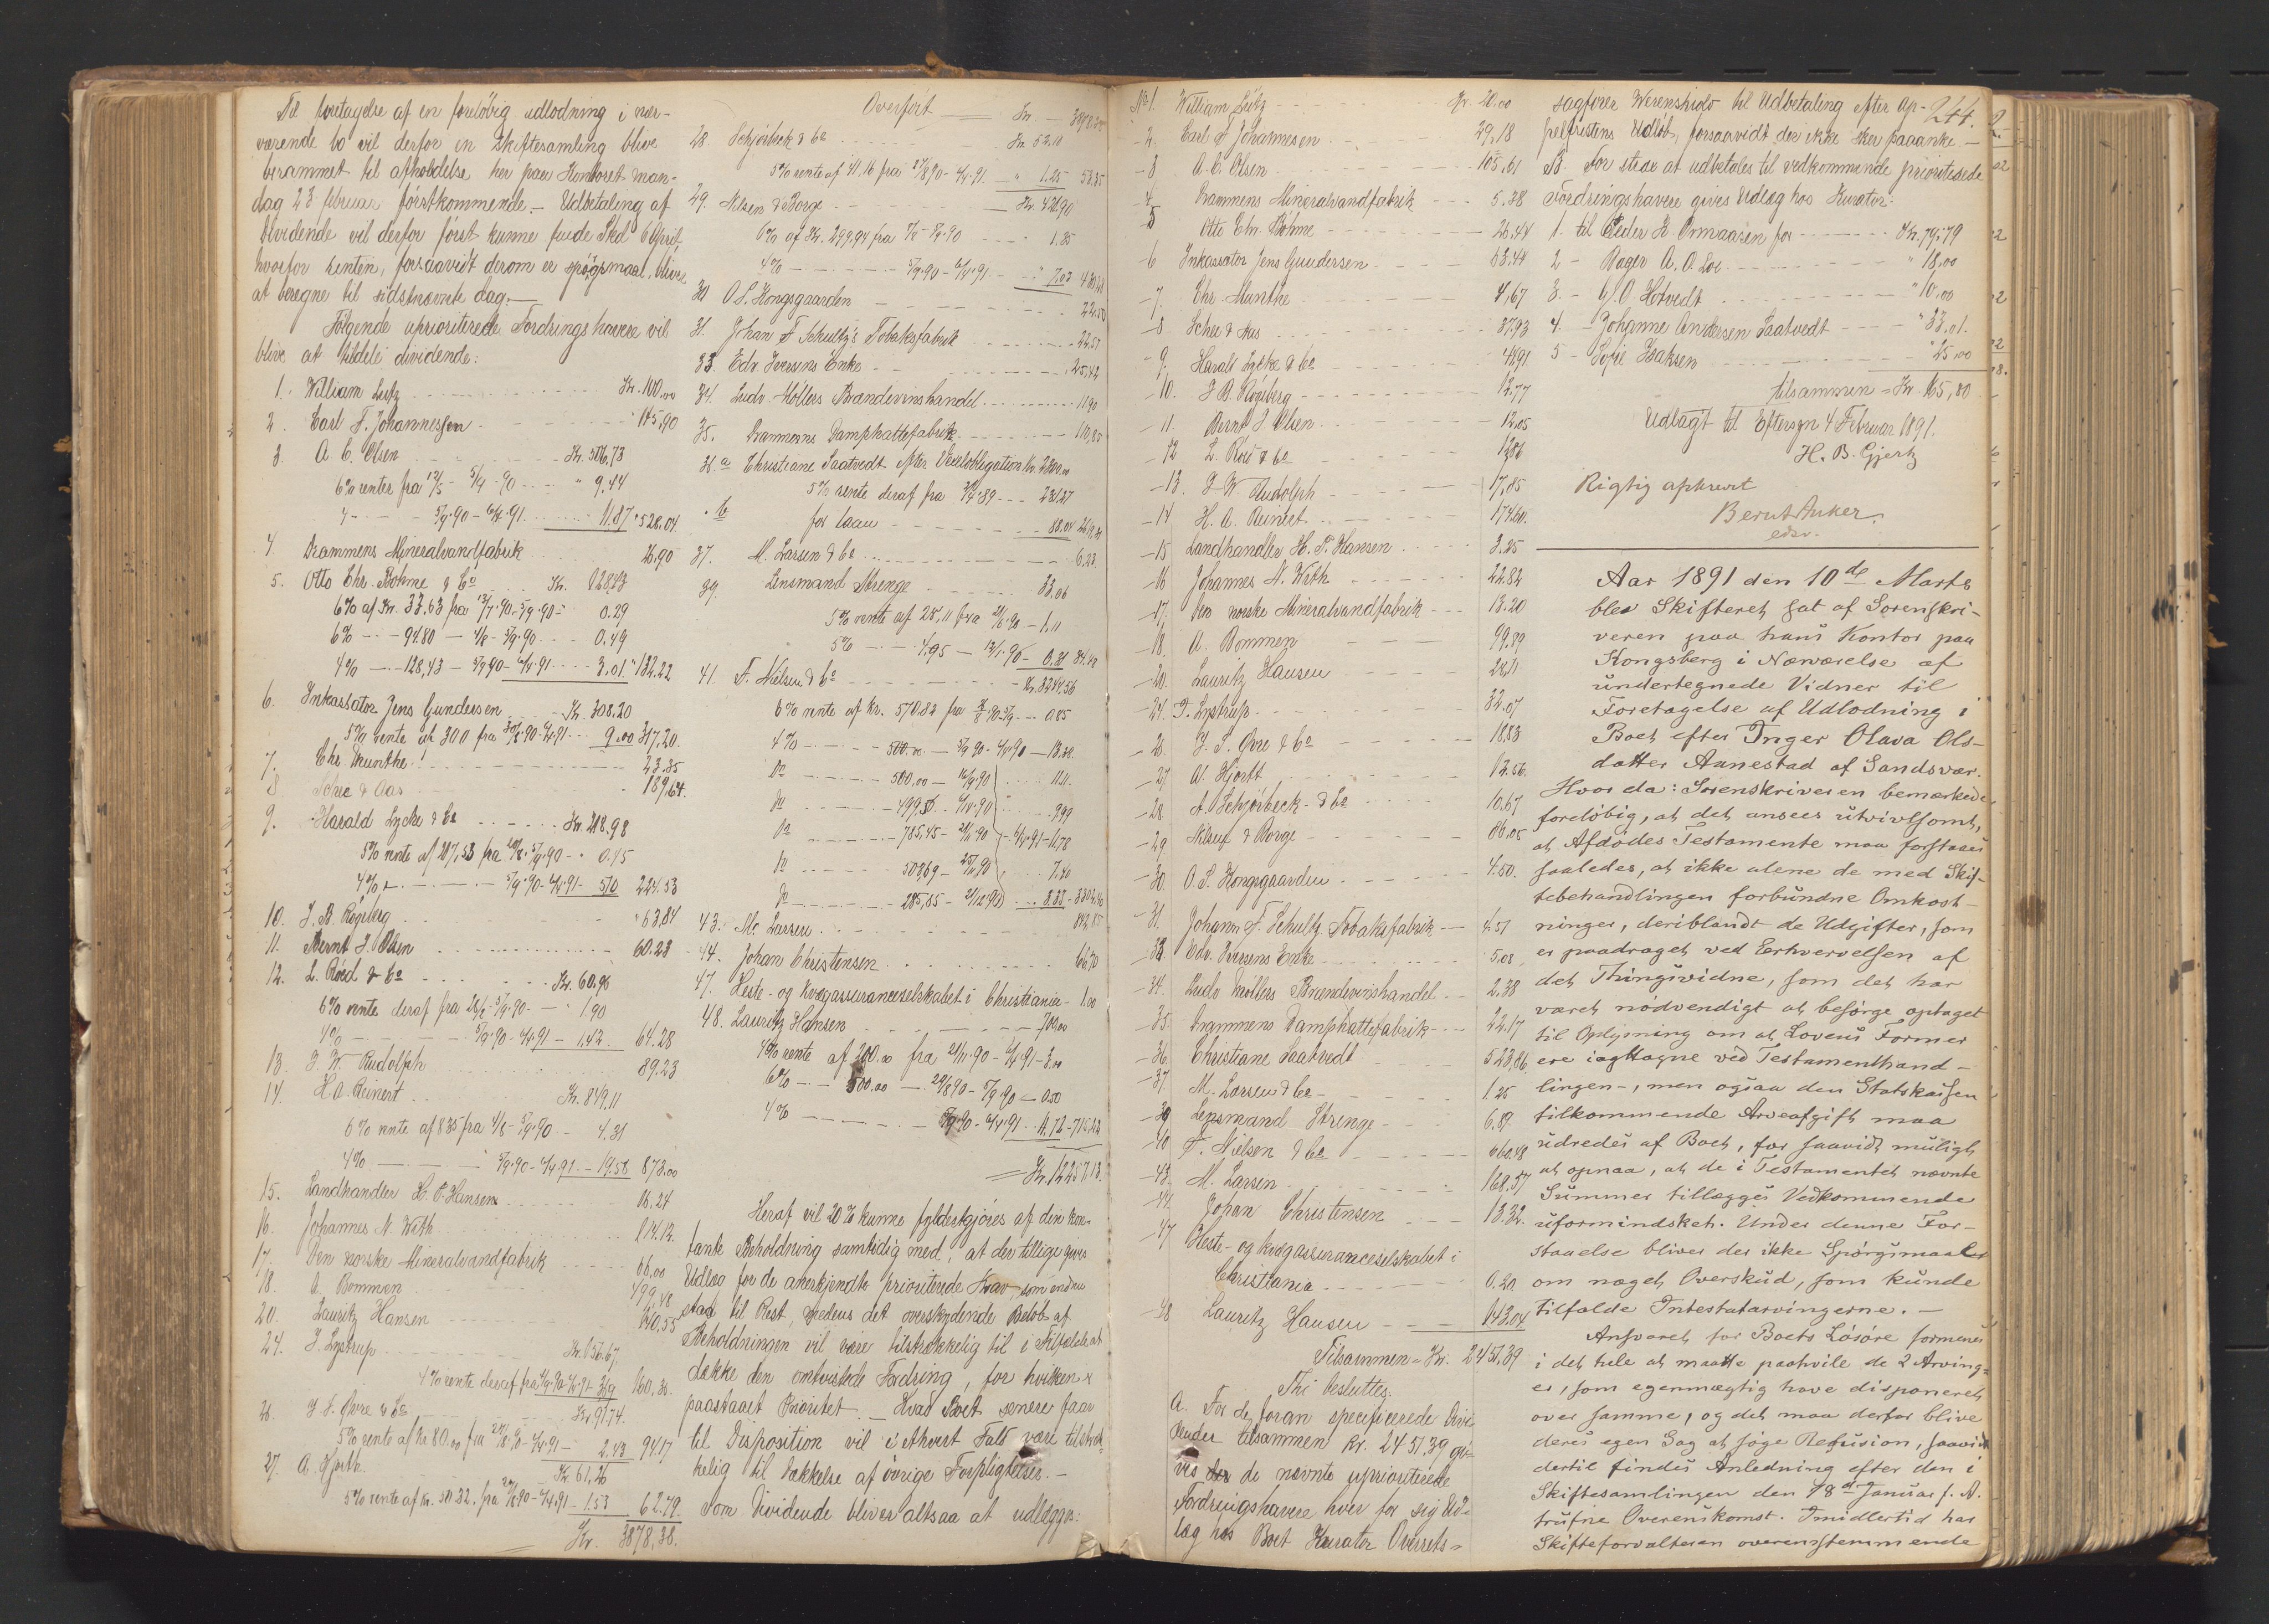 Til foretagelse af en foreløbig udlodning i nær-
værende bo vil derfor en Skiftesamling blive
berammet til afholdelse her paa Kontoret man-
dag 23 februar førstkommende. — Udbetaling af
Dividende vil derfor først kunne finde Sted 6 April,
hvorfor renten, forsaavidt derom er spøgsmaal, blive
at beregne til sidstnævnte dag. —
Følgende uprioriterede Fordringshavere vil
blive at tildele dividende:
1. William Lütz Kr. 100,00
2. Carl F. Johannessen 145,90
3. A. C. Olsen Kr. 506,73
6% renter fra 12/5 - 5/9 90 " 9.44
4 - 5/9.90 - 6/4.91 11.87 " 528,04
4. Drammens Mineralvandfabrik 26,90
5. Otto Chr. Böhme & Co Kr. 128,43
6% af Kr. 33.63 fra 13/7.90 - 5/9 90 - 0.29
6% - - 94.80 - 4/8 - 5/9.90 0.49
4% - - 128,43 - 5/9 90 - 6/4.91 3.01 " 132.22
6. Inkassator Jens Gundersen Kr. 308.20
5% rente af 300 fra 30/8.90 - 6/4.91 9.00 317,20.
7. Chr. Munthe 23.35
8 Schee & Aas 189,64.
9. Harald Lycke & Co Kr. 218.98
5% rente af 207,53 fra 20/8 - 5/9.90 - 0.45
4% - 5/9.90 - 6/4.91 - 5,10 224.53
10. J. B. Røgeberg " 63,84
11. Bernt J. Olsen 60.23
12. L. Roed & Co Kr. 60.96
6% rente deraf fra 28/2 - 5/9.90 - " 1.90
4% - 5/9.90 - 6/4.91 - 1.42. 64.28
13. J. W. Rudolph 89.23
14. H. A. Reinert Kr. 849,11
6% rente af 835 fra 4/8 - 5/9.90 - 4.31
4% - " 5/9.90 - 6/4.91 - 19.58 873.00
15. Landhandler H. P. Hansen 16.24
16. Johannes N. With 114.12.
17. Den norske Mineralvandfabrik 66,00
18. A. Bommen 499,48
20. Lauritz Hansen 140.55
24. J. Lystrup Kr. 156.67,
4% rente deraf fra 5/9.90 6/4.91 - 3.69 160,36.
26. J. S. Øvre & Co Kr. 91.74.
5% rente af Kr 80.00 fra 24/8.90 - 6/4.91 - 2.43 94.17
27. A. Hjorth Kr. 61,26
5% rente af Kr. 50.32. fra 20/8 90 - 6/4.91 - 1.53 62.79.
Kr. 3878,38.
Overført Kr. 3878.38
28. Schjørbeck & Co Kr. 52.10
5% rente af 41,16 fra 27/8 90 - 6/4.91 - " 1.25 53.35
29. Nilsen & Borge Kr. 421.90
6% af Kr. 299,94 fra - 5/9.90 1.35
4% - 5/9.90 - 6/4.91 " 7.03 430.28
30 O. S. Kongsgaarden 22.50
31. Johan F. Schultz's Tobaksfabrik 22.57
33. Edv. Iversens Enke 25.42
34. Ludv. Møllers Brændevinshandel 11.90
35. Drammens Damphattefabrik 110,85
36. a Christiane Saatvedt efter Vexelobligation Kr 2300.00
5% rente deraf fra 89 231.27
" b for laan 88.04 2619.31
37. M. Larsen & Co 6.23
39. Lensmand Strenge 33.06
5% rente af 28,11 fra 90 - 1.11
5% - - 4,95 - 12/1.90 - 0.31 34.48
41. F. Nielsen & Co Kr. 3244.56
6% rente af Kr. 570.82 fra 90 - 5/9 0.85
4% - 500.00 - 5/9 90 - 6/4.90 - 13.28
Do - 500,00 - 90 11.11.
Do - 499,50 - 90 9.99
Do - 785.45 - 90 6/4.91 - 11.78
Do - 508,69 - 90 7.50
Do - 285,85 - 90 3.33 -
43. M. Larsen 842,85
44. Johan Christensen 66,70
47. Heste- og Kvægassuranceselskabet i Christiania - 1.00
48. Lauritz Hansen 700.00
4% rente af 200.00 fra 90 - 6/4.91 - 3.00
6% - - 500.00 - 29/8 90 - 5/9 90 - 0.50
4% - 5/9.90 - 6/4.91 11.72 - 715.22
Kr. 12257.13.
Heraf vil 20% kunne fyldestgjøres af den kon-
tante Beholdning samtidig med, at der tillige gives
Udlæg for de anerkjendte prioriterede Krav, som endnu
staa til Rest, medens det overskydende Beløb af
Beholdningen vil være tilstrækkelig til i Tilfælde at
dække den omtvistede Fordring, for hvilken er
paastaaet Prioritet. — Hvad Boet senere faar
til Disposition vil i ethvert Fald være tilstræk-
kelig til Dækkelse af øvrige Forpligtelser. —
Som Dividende bliver altsaa at udlægge:
No 1. William Lütz Kr. 20.00
- 2. Carl F. Johannesen 29,18
- 3 A. C. Olsen 105,61
4. Drammens Mineralvandfabrik 5.38
5 Otto Chr. Böhme 26.44
- 6 Inkassator Jens Gundersen 63.44
- 7. Chr. Munthe 4,67
- 8 Schee & Aas 37.93
- 9. Harald Lycke & Co 44.91
- 10. J. B. Røgeberg 12,77
- 11. Bernt J. Olsen 12.05
- 12 L. Roed & Co 12.86
- 13. J. W. Rudolph 17,85
- 14 H. A. Reinert 174.60.
- 15 Landhandler H. P. Hansen 3.25
- 16 Johannes N. With 22.82
- 17. Den norske Mineralvandfabrik 13.20
- 18. A. Bommen 99.89
- 20. Lauritz Hansen 28,11
- 24. J. Lystrup 32.07
- 26. J. S. Øvre & Co 18.83
- 27 A. Hjorth 12.56.
- 28. A. Schjørbeck & Co 10.67
- 29 Nilsen & Borge 86.05
- 30. O. S. Kongsgaarden 4.50.
- 31. Johann F. Schultz Tobaksfabrik 4.51
- 33 Edv. Iversens Enke 5.08
- 34. Ludv Møllers Brændevinshandel 2.38
- 35. Drammens Damphattefabrik 22.17
- 36. Christiane Saatvedt 523,86
- 37. M. Larsen & Co 1.25
- 39 Lensmand Strenge 6.89
- 40 F. Nielsen & Co 660.48
- 43. M. Larsen 168.57
- 44. Johan Christensen 13.32.
- 47 Heste- og Kvægassuranceselskabet i
Christiania 0.20.
- 48 Lauritz Hansen 143.04
Tilsammen = Kr. 2451,39
Thi besluttes:
A. For de foran specificerede Divi-
dender tilsammen Kr. 2451,39 gi-
ves de nævnte uprioriterede
Fordringshavere hver for sig Ud-
læg hos Boet Kurator Overrets-
244.
sagfører Werenskiold til Udbetaling efter Ap-
pelfristens Udløb, forsaavidt der ikke sker paaanke. —
B. For strax at udbetales til vedkommende prioriterede
Fordringshavere gives Udlæg hos Kurator:
1. til Peder H Ormaasen for Kr. 79,79
2 - Bager A. O. Loe " 18.00
3. - G. O. Hotvedt " 10,00
4. - Johanne Andersen Saatvedt " 33,01.
5 - Sofie Isaksen " 25,00
tilsammen = Kr. 165,80
Udlagt til Eftersyn 4 Februar 1891.
H. B. Gjertz
Rigtig afskrevet
Bernt Anker.
edsv.
Aar 1891 den 10de Marts
blev Skifteret sat af Sorenskri-
veren paa hans Kontor paa
Kongsberg i Nærværelse af
undertegnede Vidner til
Foretagelse af Udlodning i
Boet efter Inger Olava Ols-
datter Aanestad af Sandsvær.
Hvor da: Sorenskriveren bemærkede
foreløbig, at det ansees utvivlsomt,
at Afdødes Testamente maa forstaaes
saaledes, at ikke alene de med Skif-
tebehandlingen forbundne Omkost-
ninger, deriblandt de Udgifter, som
er paadraget ved Eerhvervelsen af
det Thingsvidne, som det har
været nødvendigt at besørge optaget
til Oplysning om at Lovens Former
ere iagttagne ved Testamenthand-
lingen -, men ogsaa den Statskassen
tilkommende Arveafgift maa
udredes af Boet, for saavidt muligt
at opnaa, at de i Testamentet nævnte
Summer tillægges Vedkommende
uformindsket. Under denne For-
staaelse bliver der ikke Spørgsmaal
om noget Overskud, som kunde
tilfalde Intestatarvingerne. —
Ansvaret for Boets Løsøre formenes
i det hele at maatte paahvile de 2 Arving-
er, som egenmægtig have disponeret
over samme, og det maa derfor blive
deres egen Sag at søge Refusion, saavidt
dertil findes Anledning efter den i
Skiftesamlingen den 18de Januar f. A.
trufne Overenskomst. Imidlertid har
Skifteforvalteren overensstemmende